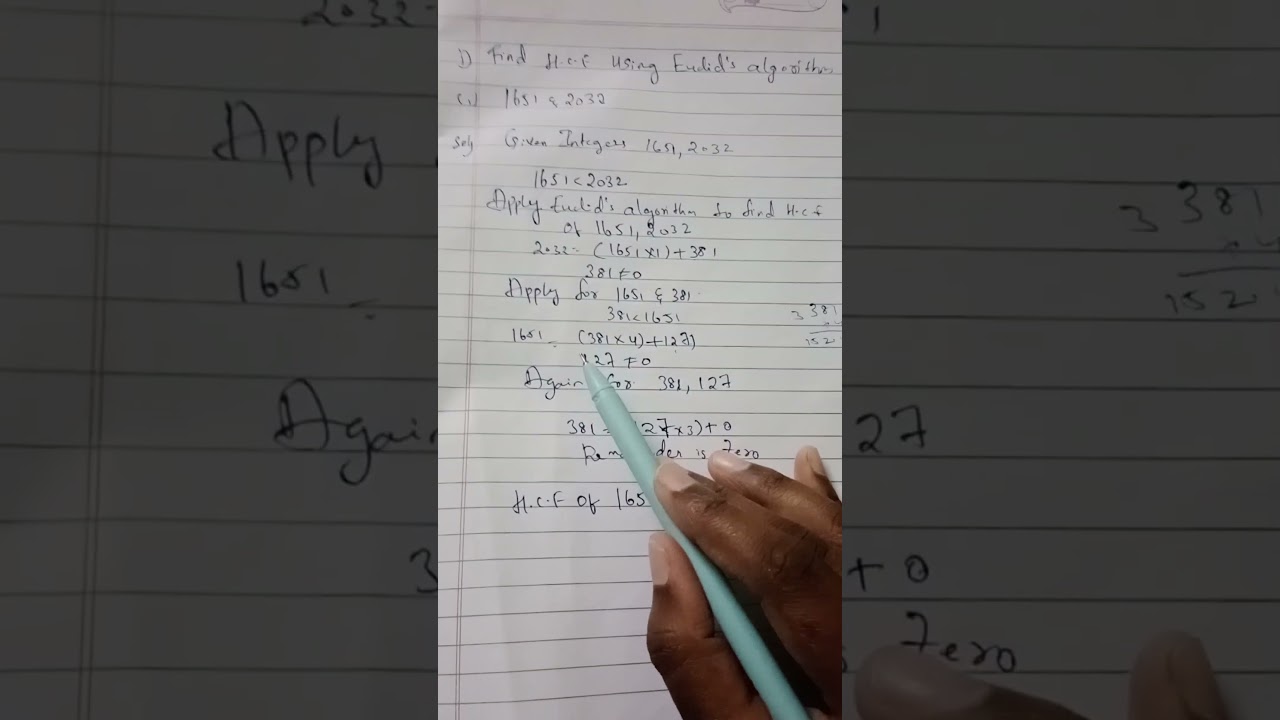 1) Find H.C.F using Euclid's algorithm
(i) 1651 & 2032
Given Integers 1651, 2032
1651 < 2032
Apply Euclid's algorithm to find H.C.F
of 1651, 2032
2032 = (1651 × 1) + 381
381 ≠ 0
Apply for 1651 & 381
381 < 1651
1651 = (381 × 4) + 127
127 ≠ 0
Again for 381, 127
381 = 127 × 3) + 0
is Zero
H.C.F of 165
3 381
152